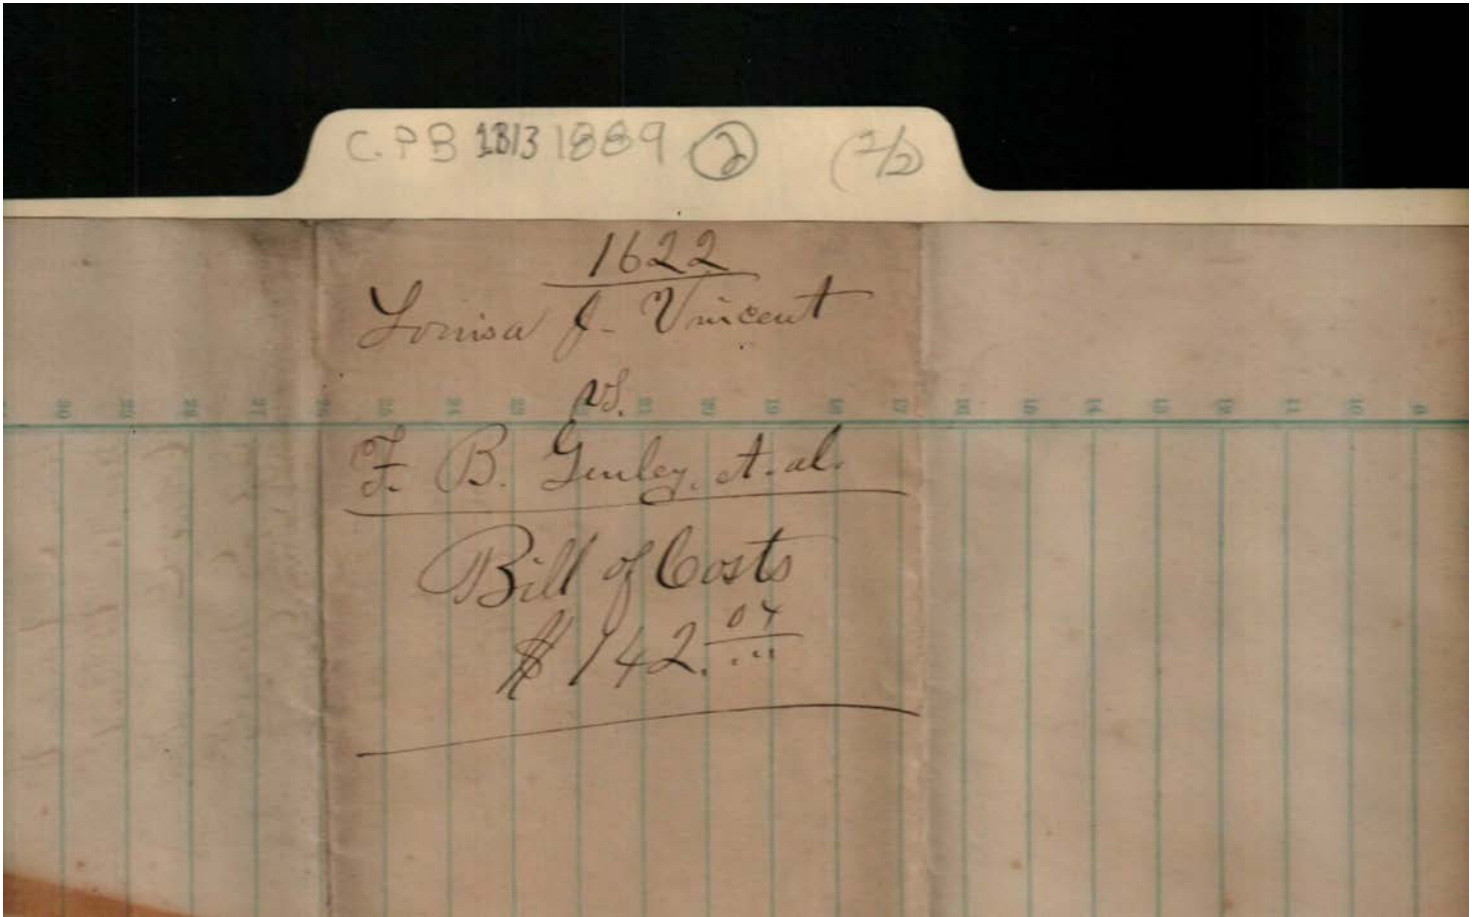 C.P.B 1813 1889 2 (1/2)
1622
Louisa J. Vincent
vs.
F. B. et. al.
Bill of Costs
$142.04